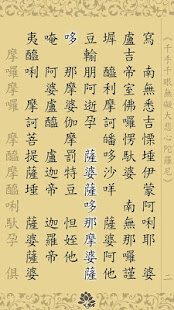 《千手千眼無礙大悲心陀羅尼》 二
寫 南無悉吉慄埵伊蒙阿唎耶
盧吉帝室佛囉楞馱婆 南無那囉謹
墀 醯唎摩訶皤哆沙咩 薩婆阿他
豆輸朋 阿逝孕 薩婆薩哆那摩婆薩
哆 那摩婆伽 摩罰特豆 怛姪他
唵 阿婆盧醯 盧迦帝 迦羅帝
夷醯唎 摩訶菩提薩埵 薩婆薩婆
摩囉摩囉 摩醯摩醯唎馱孕 俱